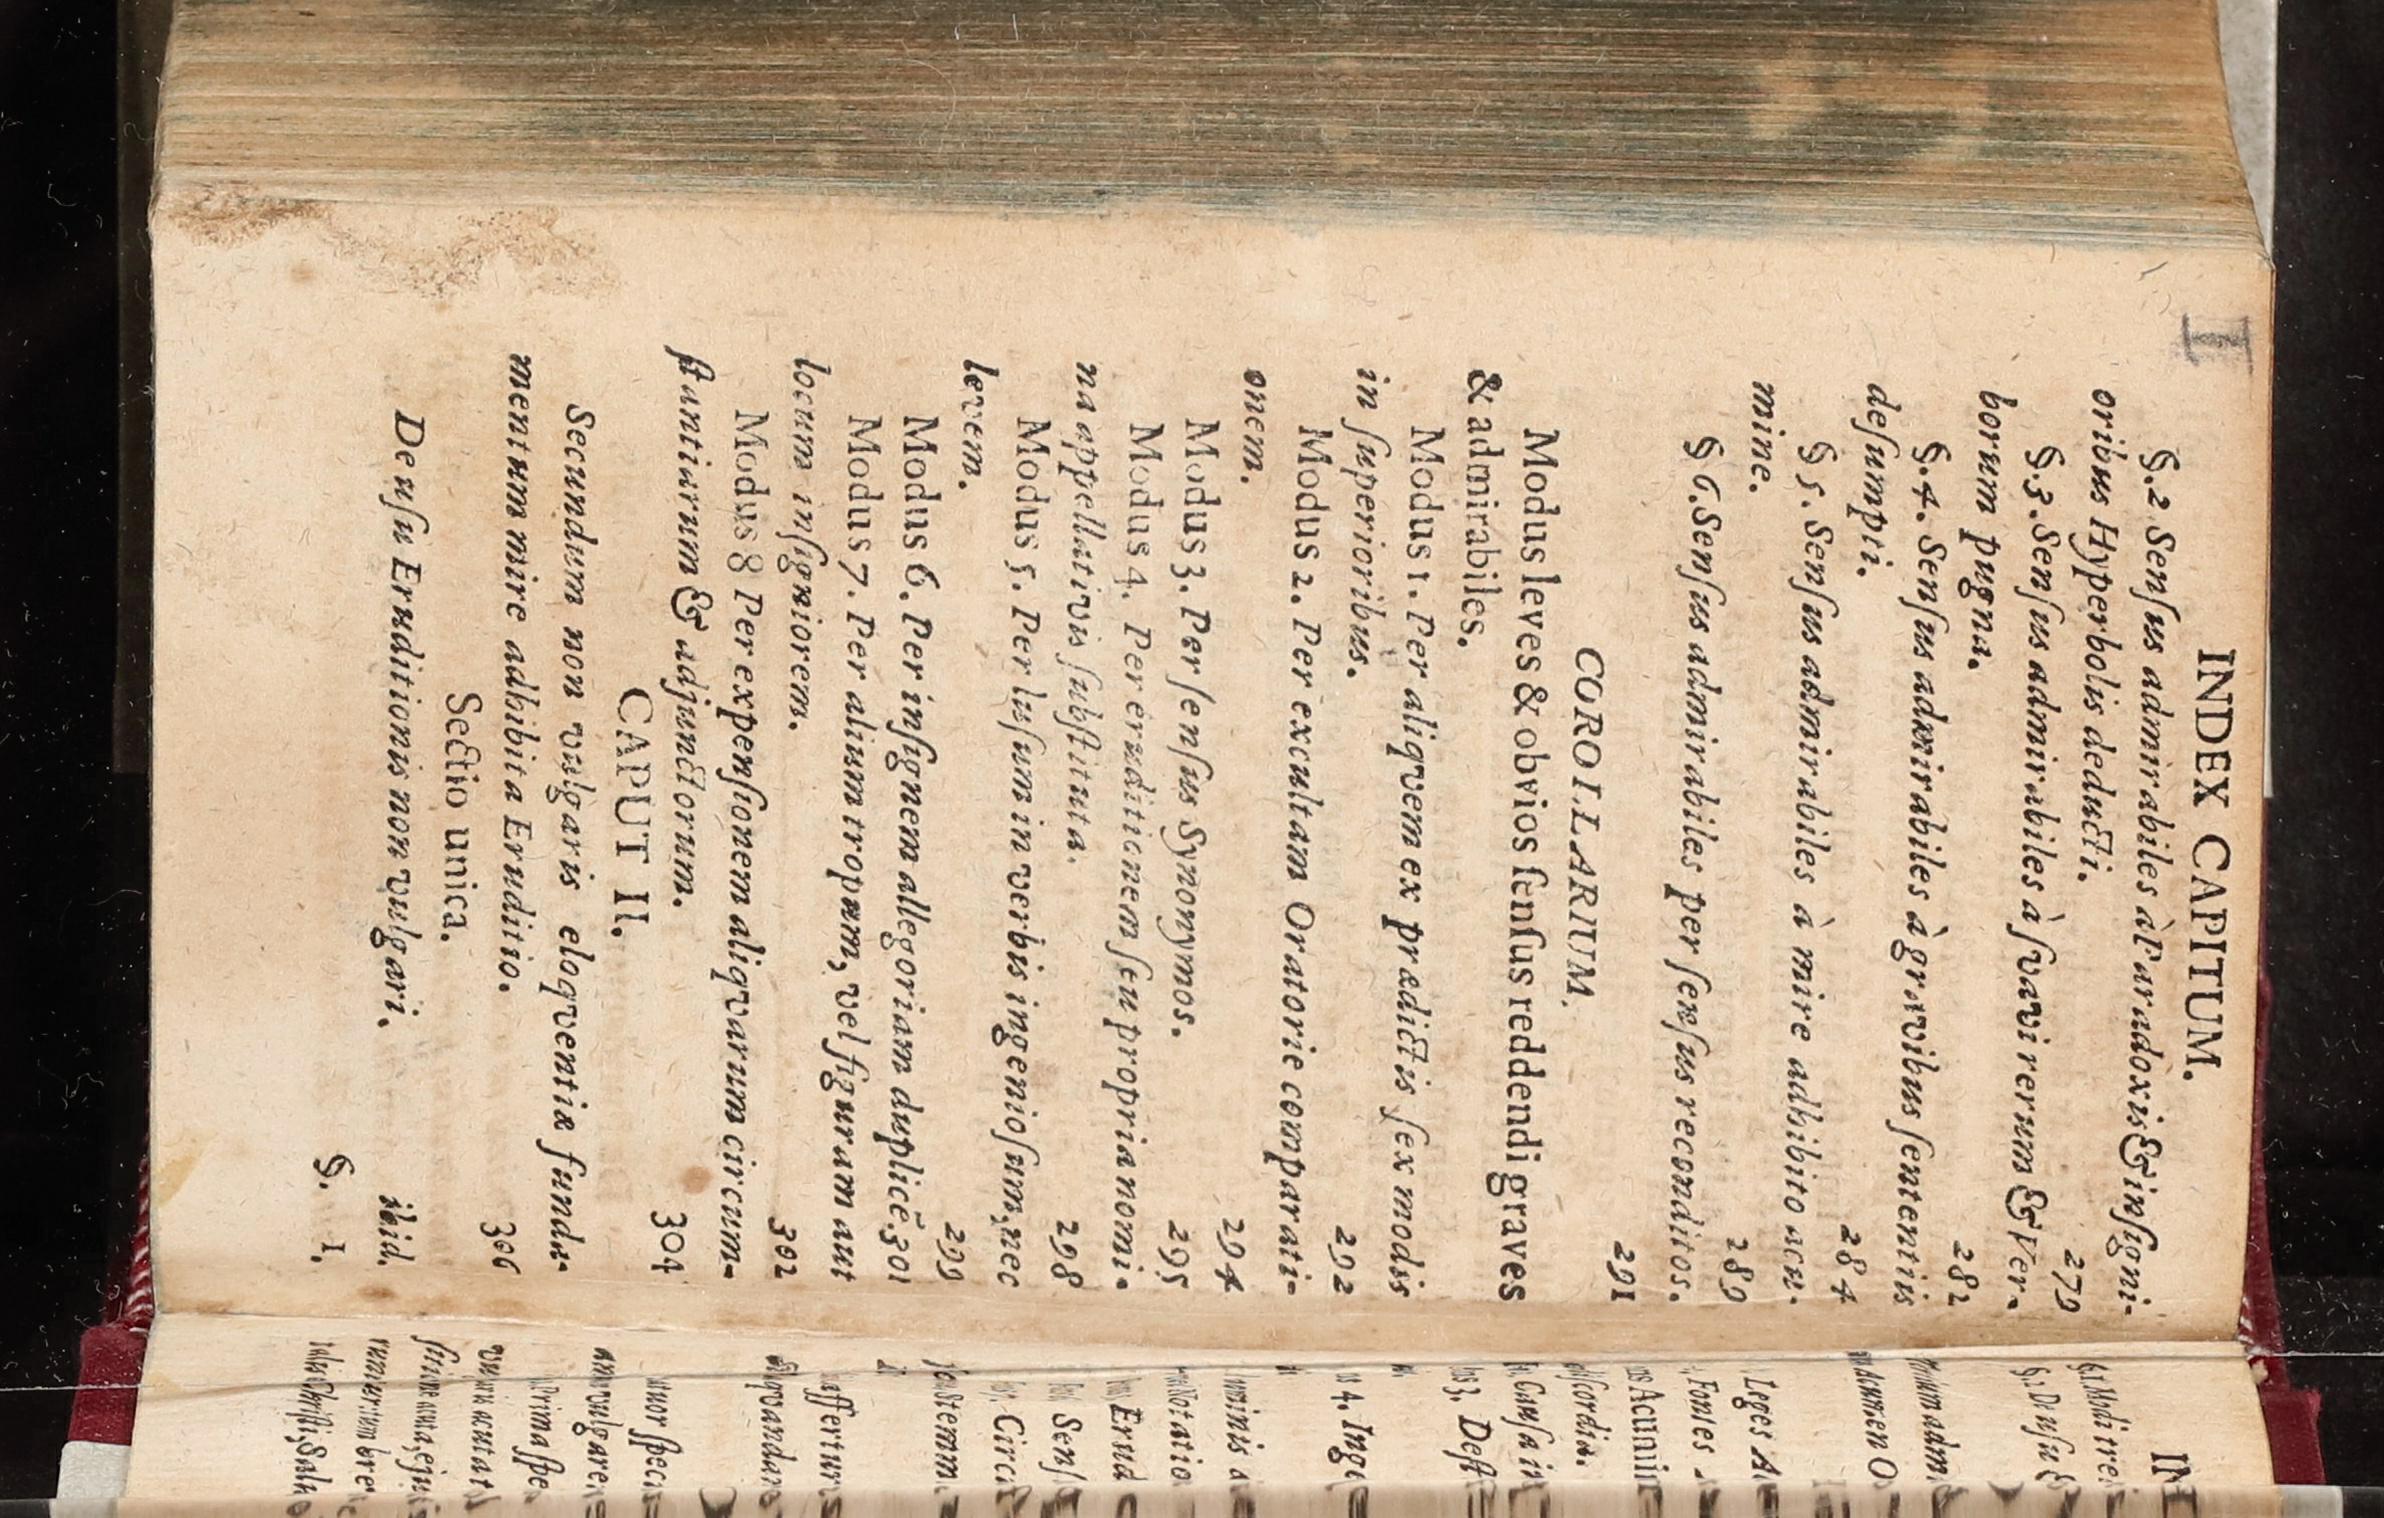 INDEX CAPITUM.
§.2 Senſus admirabiles à Paradoxis & inſigni-
oribus Hyperbolis deducti. 279
§.3. Senſus admirabiles à ſvavi rerum & Ver-
borum pugna. 282
§.4. Senſus admirabiles à gravibus ſententiis
deſumpti. 284
§ 5. Senſus admirabiles à mire adhibito acu-
mine. 289
§ 6. Senſus admirabiles per ſenſus reconditos.
291
COROLLARIUM.
Modus leves & obvios ſenſus reddendi graves
& admirabiles.
Modus 1. Per aliqvem ex prædictis ſex modis
in ſuperioribus. 292
Modus 2. Per excultam Oratorie comparati-
onem. 294
Modus 3. Per ſenſus Synonymos. 295
Modus 4. Per eruditionem ſeu propria nomi-
na appellativis ſubſtituta. 298
Modus 5. Per luſum in verbis ingenioſum, nec
levem. 299
Modus 6. Per inſignem allegoriam duplicẽ. 301
Modus 7. Per alium tropum, vel figuram aut
locum inſigniorem. 302
Modus 8 Per expenſionem aliqvarum circum-
ſtantiarum & adjunctorum. 304
CAPUT II.
Secundum non vulgaris eloqventiæ funda-
mentum mire adhibita Eruditio. 306
Sectio unica.
De uſu Eruditionis non vulgari. ibid.
§. 1.